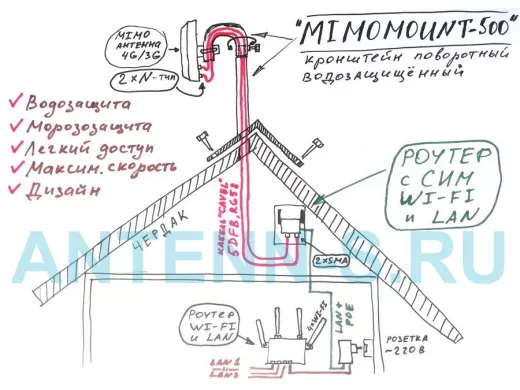 "MIMOMOUNT-500"
кронштейн поворотный
водозащищённый
MIMO
АНТЕННА
4G/3G
2×N-тип
✓ Водозащита
✓ Морозозащита
✓ Легкий доступ
✓ Максим. скорость
✓ Дизайн
РОУТЕР
с СИМ
WI-FI
и LAN
ЧЕРДАК
КАБЕЛЬ "CAVEL"
5DFB, RG58
2×SMA
ANTENN-S.RU
РОУТЕР
WI-FI
и LAN
4×WI-FI
LAN+
POE
РОЗЕТКА
~220В
LAN1
LAN3